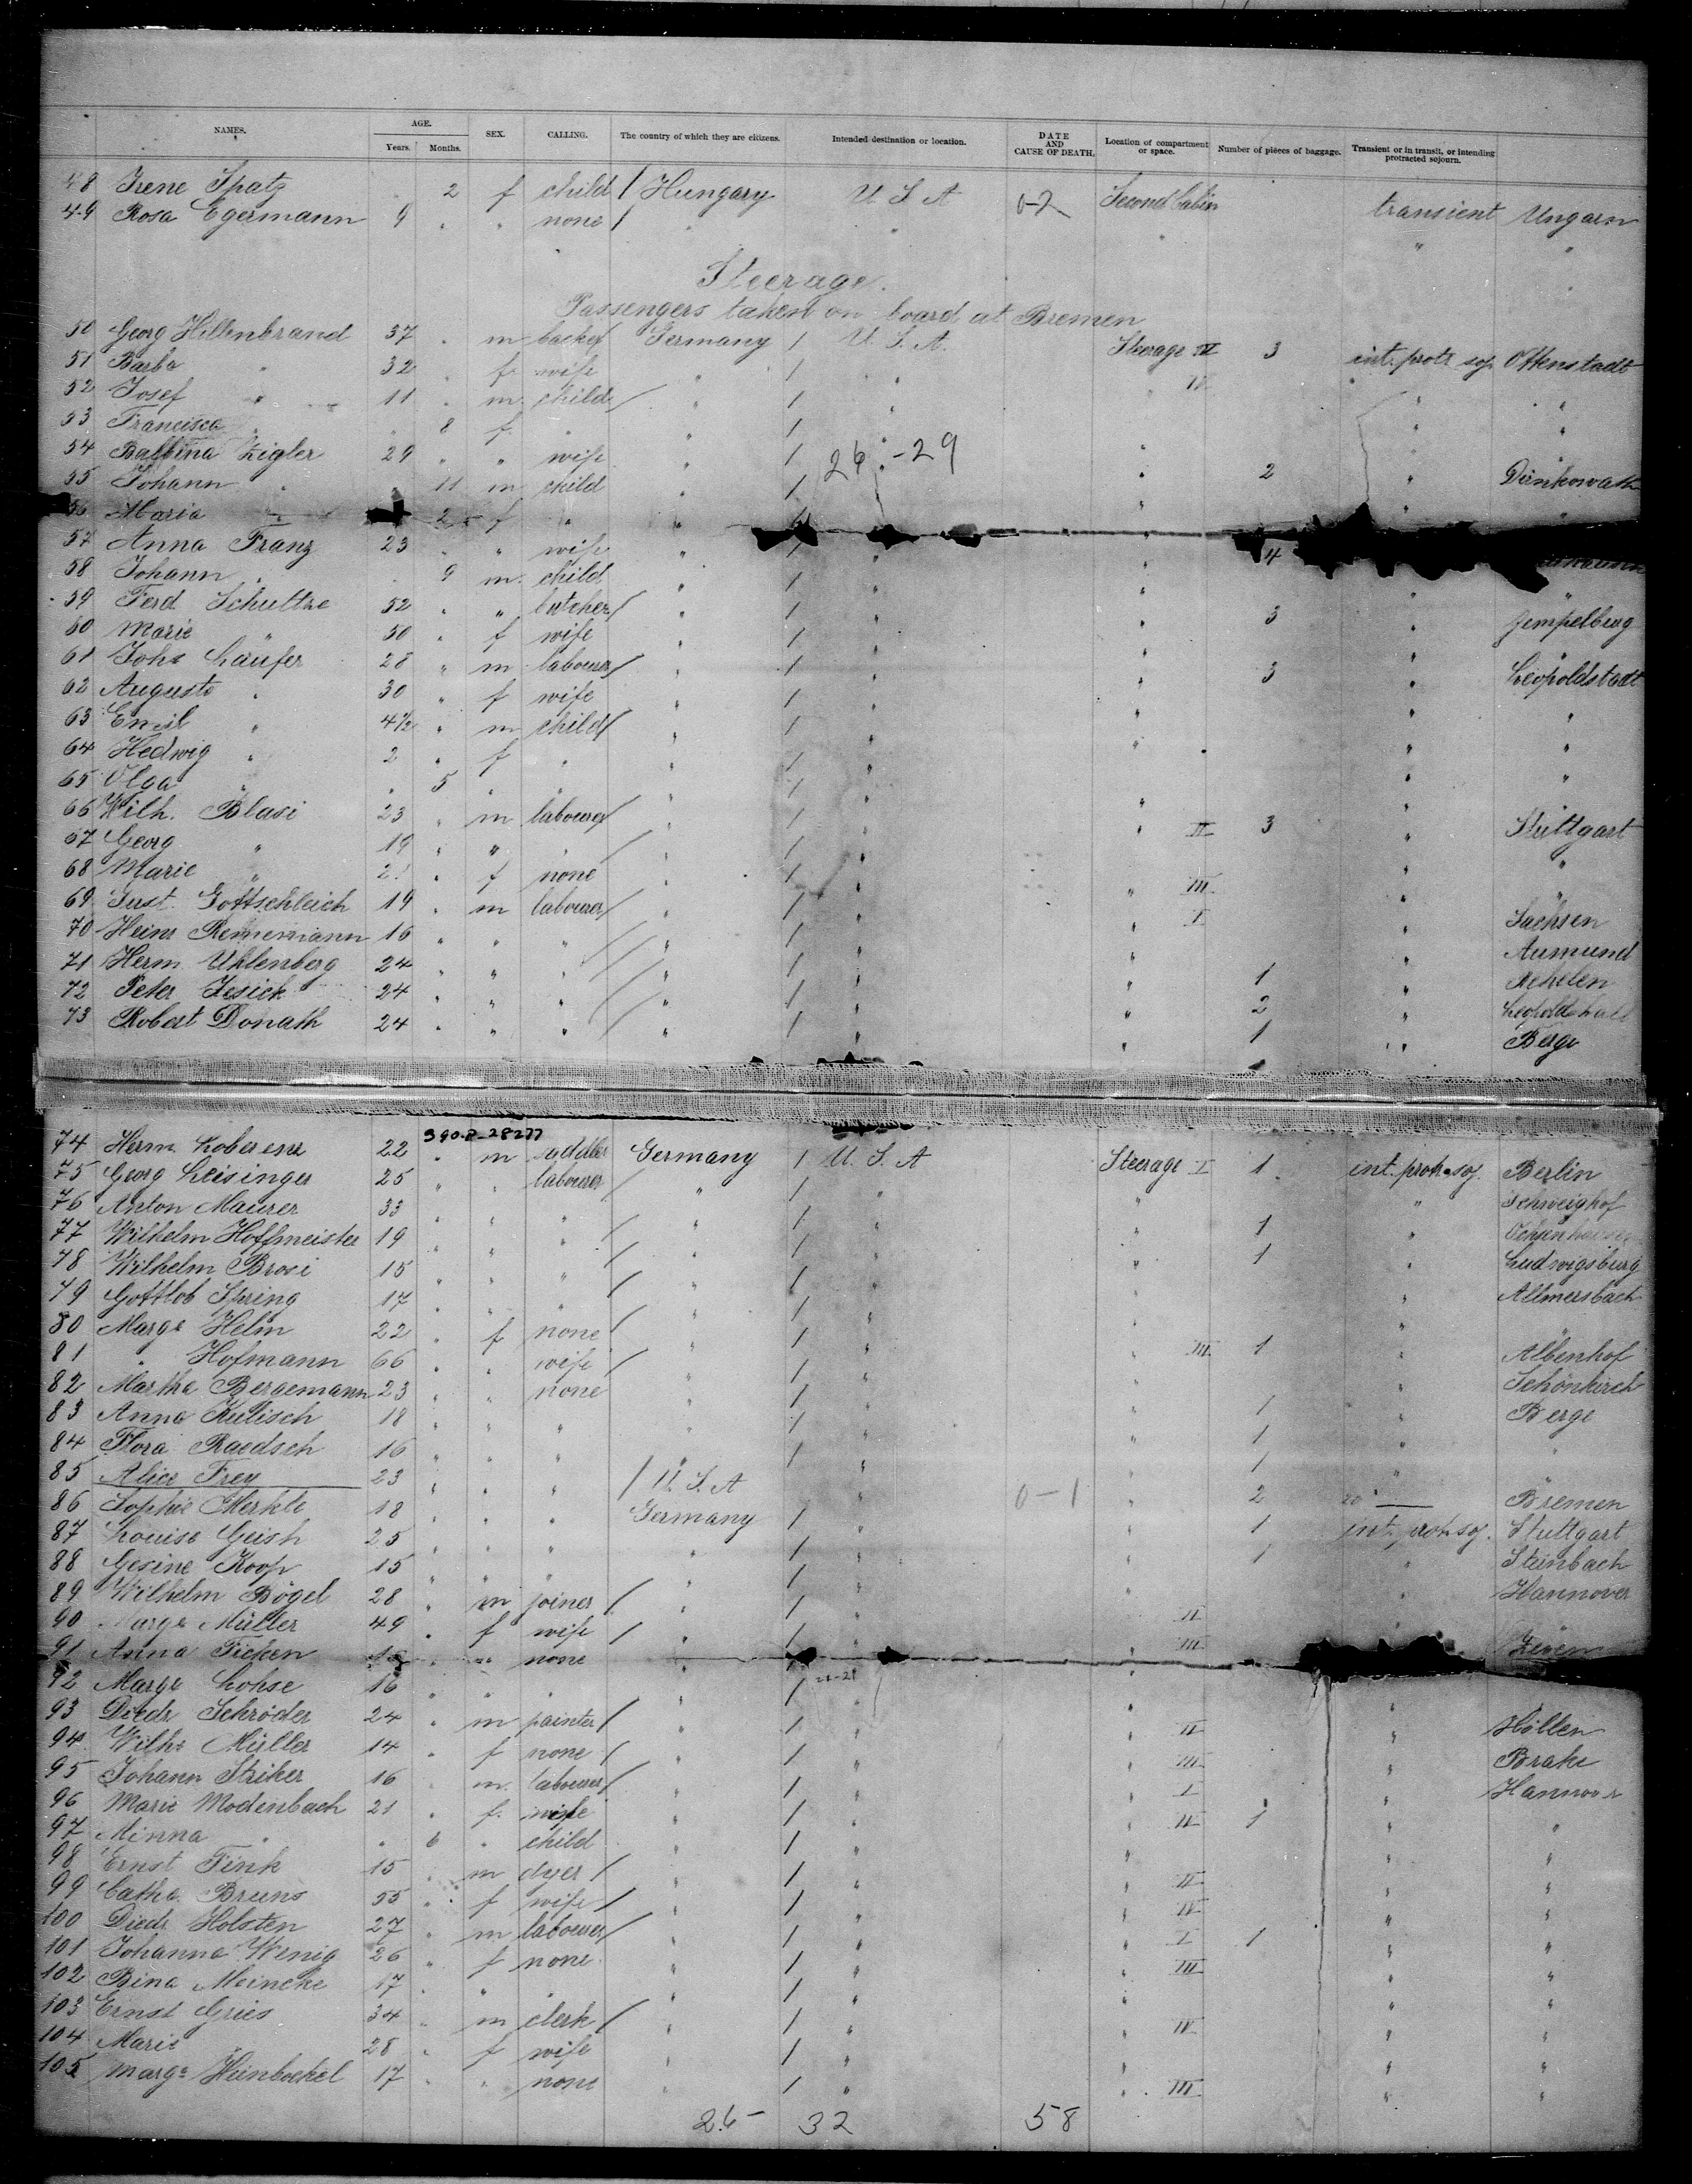 NAMES. AGE. Years. Months. SEX. CALLING. The country of which they are citizens. Intended destination or location. DATE AND CAUSE OF DEATH. Location of compartment or space. Number of pieces of baggage. Transient or in transit, or intending protracted sojourn.
48 Irene Spatz 2 f child / Hungary U S A 0-2 Second Cabin transient Ungarn
49 Rosa Egermann 9 " " none / " " " " "
Steerage.
Passengers taken on board at Bremen
50 Georg Hillenbrand 37 " m Germany / U. S. A. Steerage IV 3 int. protr. soj. Ottenstadt
51 Barba " 32 " f. wife " / " IV " "
52 Josef " 11 " m. child / " / " " "
53 Francisca " " 8 f. " " / " " "
54 Balbina Zigler 29 " " wife " / 26 - 29 " 2 "
55 Johann " " 11 m child " / " "
56 Maria 2 f " "
57 Anna Franz 23 " " wife " / " " 4
58 Johann " " 9 m. child " / " " " "
59 Ferd Schultze 52 " " butcher / " / " " 3 "
60 Marie " 50 " f wife " / " " " "
61 Johs Laufer 28 " m labourer / " / " " 3 " Leopoldstadt
62 Auguste " 30 " f wife " / " " " "
63 Emil " 4½ " m child / " / " " " "
64 Hedwig " 2 " f " " / " " "
65 Olga " " 5 " " " / " " "
66 Wilh. Blasi 23 " m labourer / " / " " II 3 " Stuttgart
67 Georg " 19 " " " / " / " " "
68 Marie " " f none " / " " III " "
69 Gust. Gottschleich 19 " m labourer / " / " " I " Sachsen
70 Heinr Rememann 16 " " " / " / " " " Aumund
71 Herm Uhlenberg 24 " " " / " / " " 1 "
72 Peter Jesick 24 " " " / " / " " 2 " Leopoldshall
73 Robert Donath 24 " " " / " / " " 1 " Berge
390.P-28277
74 Herm. 22 " m saddler Germany / U. S. A Steerage I 1 int. protr. soj. Berlin
75 Georg Leisinger 25 " " labourer / " / " " " Schweighof
76 Anton Maurer 33 " " " " / " " 1 "
77 Wilhelm Hoffmeister 19 " " " / " / " " 1 " Ludwigsburg
78 Wilhelm Brosi 15 " " " / " / " " " Allmersbach
79 Gottlob Spring 17 " " " / " / " " "
80 Marga Helm 22 " f none / " / " III 1 " Albenhof
81 " Hofmann 66 " " wife / " / " " " Schönkirch
82 Martha Bergemann 23 " " none " / " " 1 " Berge
83 Anna Kulisch 18 " " " " / " " 1 " "
84 Flora Raedsch 16 " " " " / " " 1 "
85 Alice Frey 23 " " " / U. S. A " 0-1 " 2 Bremen
86 Sophie Merkle 18 " " " Germany / " " 1 int. protr. soj. Stuttgart
87 Louise Geish 25 " " " " / " " 1 " Steinbach
88 Gesine Koop 15 " " " " / " " " Hannover
89 Wilhelm Bögel 28 " m joiner / " / " II "
90 Marga Müller 49 " f wife / " / " III Zeven
91 Anna Ficken " " none " /
92 Marga Lohse 16 " " " " / " " "
93 Diedr Schröder 24 " m painter / " / " " II "
94 Wilhe Müller 14 " f none / " / " " III " Brake
95 Johann Striker 16 " m. labourer / " / " " I " Hannover
96 Marie Modenbach 21 " f. wife " / " " IV 1 " "
97 Minna " " 6 " child " / " " " "
98 Ernst Fink 15 " m dyer / " / " " II " "
99 Catha. Bruns 55 " f wife / " / " " IV " "
100 Diedr Holsten 27 " m labourer / " / " " I 1 " "
101 Johanna Wenig 26 " f none " / " " III " "
102 Bina Meincke 17 " " " " / " " " "
103 Ernst Gries 34 " m clerk / " / " " IV " "
104 Marie " 28 " f wife " / " " " "
105 Marga Heinbockel 17 " " none " / " " III " "
26- 32 58